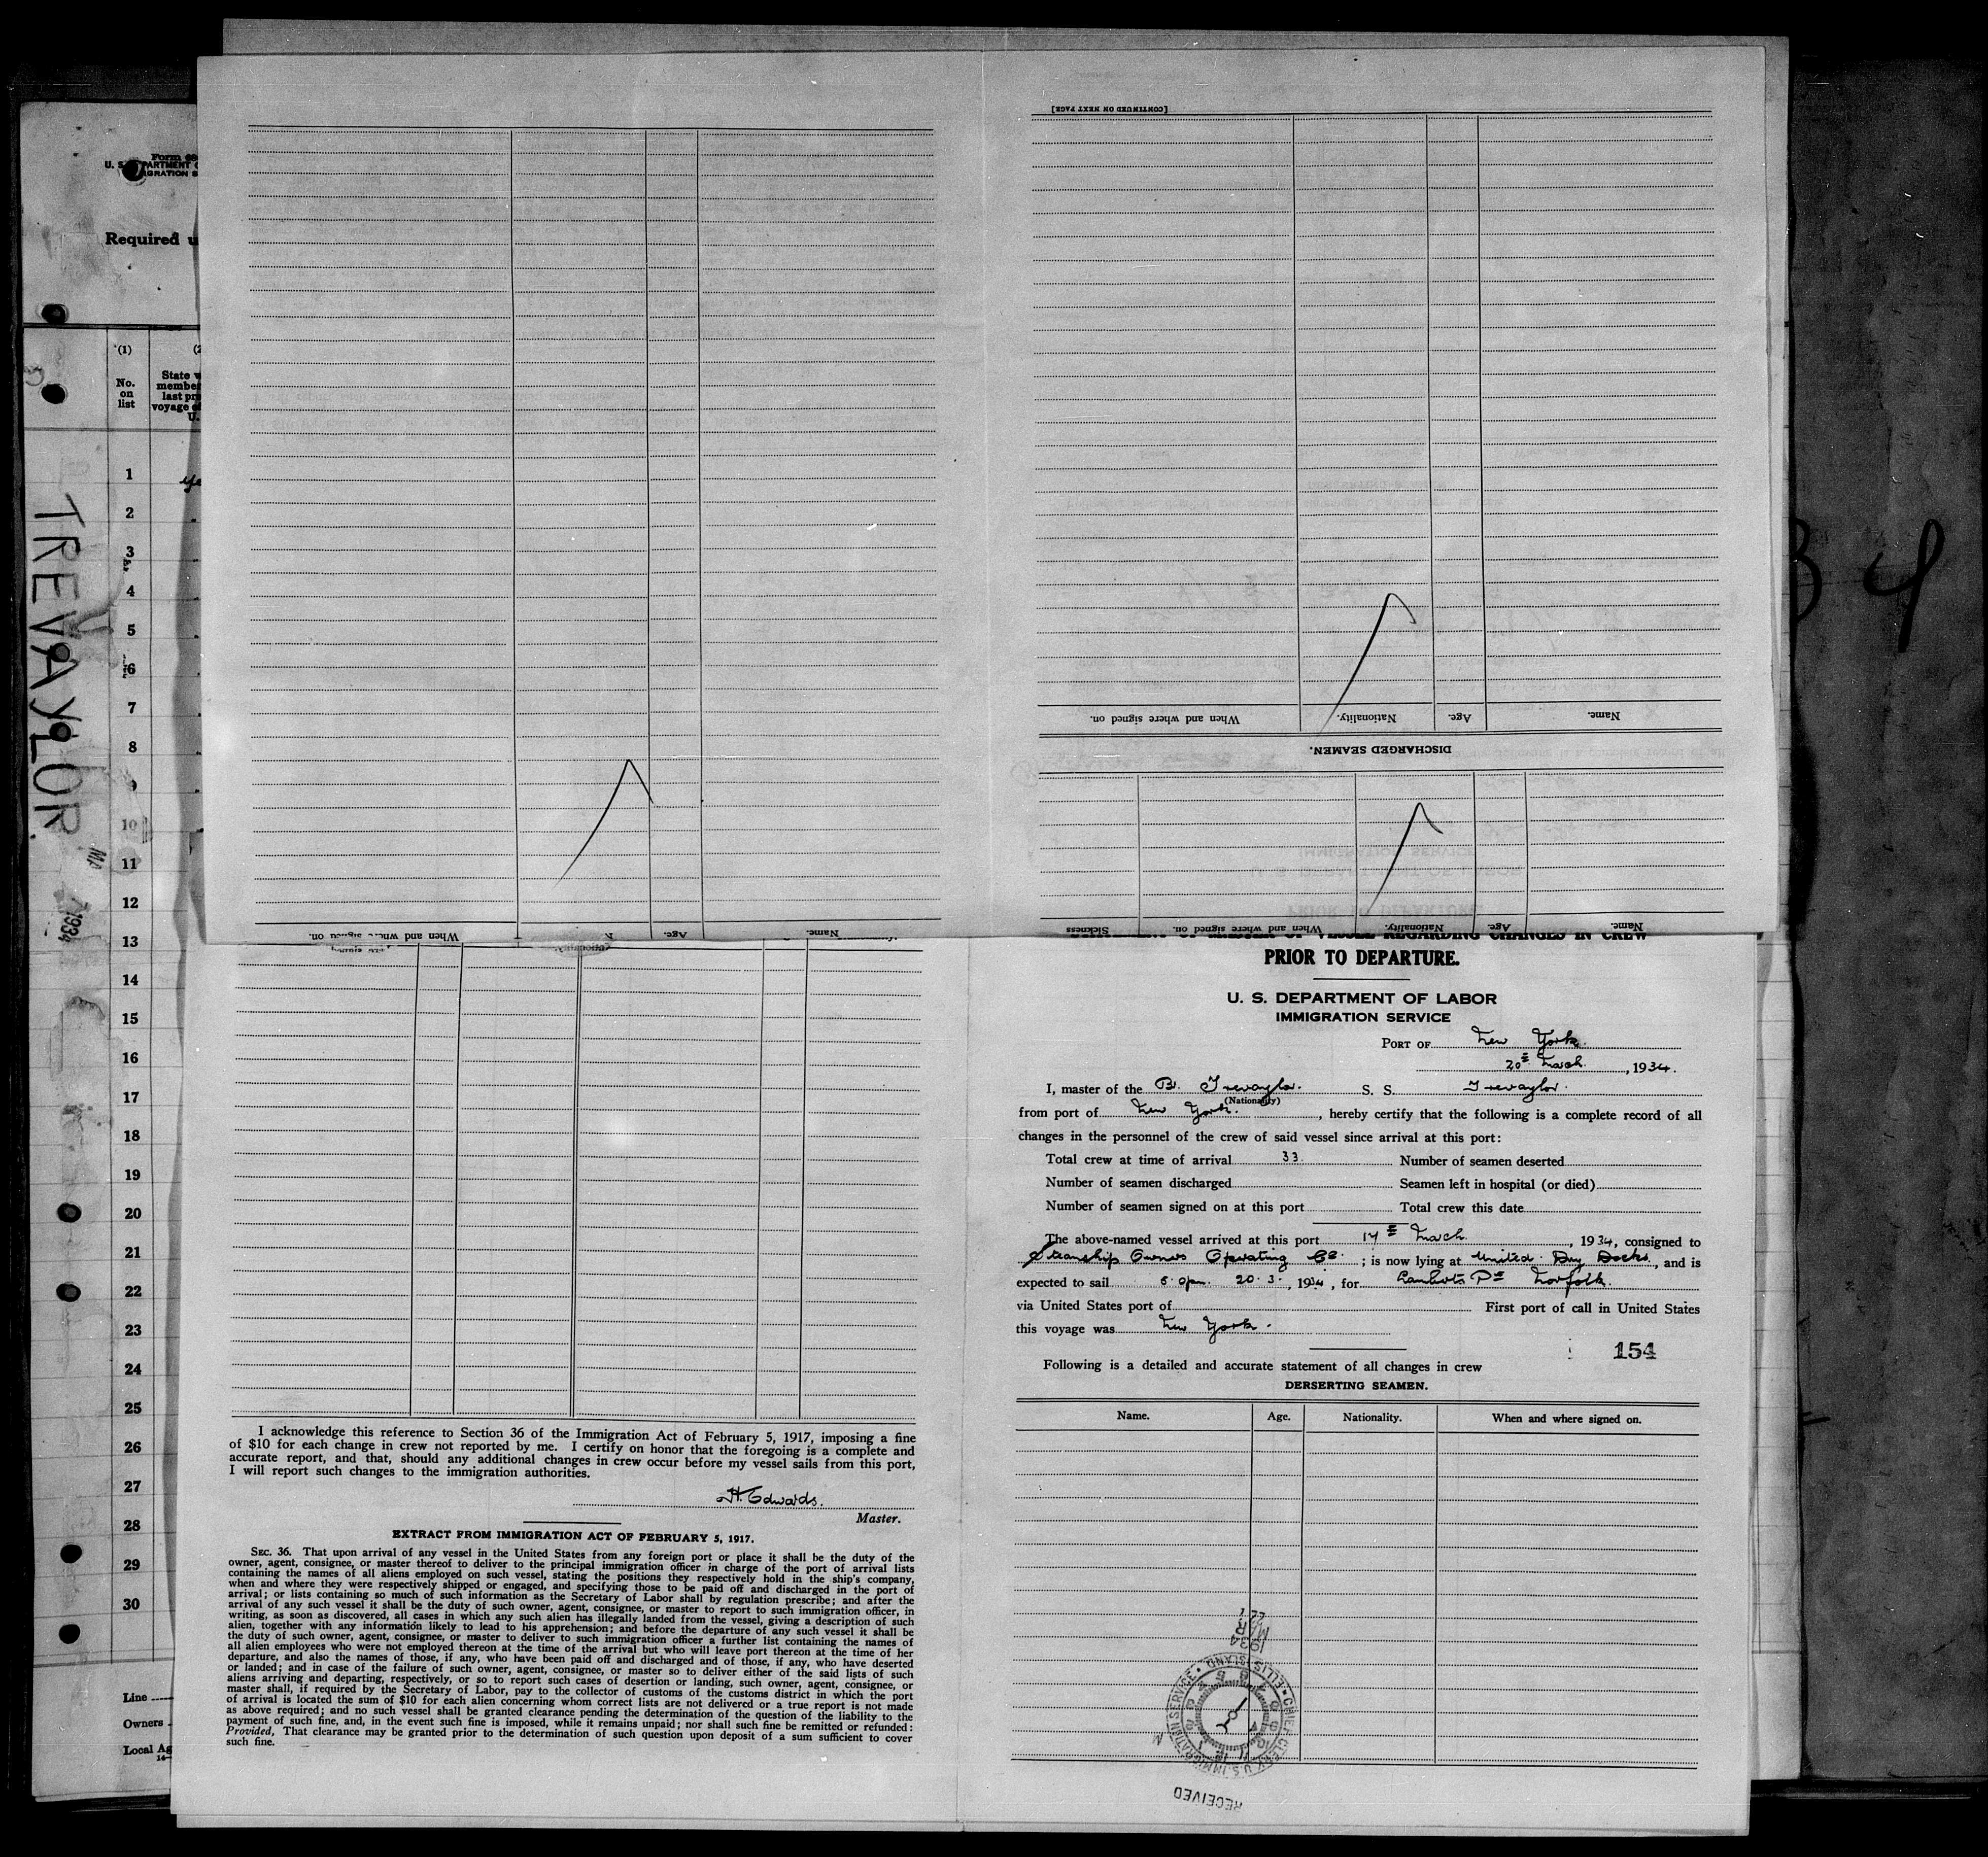 Form 68
U. S. DEPARTMENT
IGRATION S
Required u
(1)
No.
on
list
State w
member
last pre
voyage
U.
1
2
3
4
5
6
7
8
9
10
11
12
13
14
15
16
17
18
19
20
21
22
23
24
25
26
27
28
29
30
Line
Owners
Local Ag
TREVAYLOR.
1934
[CONTINUED ON NEXT PAGE]
Name. Age. Nationality. When and where signed on.
DISCHARGED SEAMEN.
Name. Age. Nationality. When and where signed on. Sickness
Name. Age. When and where signed on.
OF MASTER OF VESSEL REGARDING CHANGES IN CREW
PRIOR TO DEPARTURE.
U. S. DEPARTMENT OF LABOR
IMMIGRATION SERVICE
PORT OF New York.
20th March, 1934.
I, master of the B. Trevaylor. S. S. Trevaylor.
(Nationality)
from port of New York., hereby certify that the following is a complete record of all
changes in the personnel of the crew of said vessel since arrival at this port:
Total crew at time of arrival 33. Number of seamen deserted
Number of seamen discharged Seamen left in hospital (or died)
Number of seamen signed on at this port Total crew this date
The above-named vessel arrived at this port 14th March, 1934, consigned to
Steamship Owners Operating Co.; is now lying at United Dry Docks, and is
expected to sail 5.0pm. 20.3., 1934, for Lamberts Pt Norfolk.
via United States port of First port of call in United States
this voyage was New York.
154
Following is a detailed and accurate statement of all changes in crew
DERSERTING SEAMEN.
Name. Age. Nationality. When and where signed on.
1934
MAR
CHIEF CLERK U.S. IMMIGRATION SERVICE • ELLIS ISLAND •
RECEIVED
I acknowledge this reference to Section 36 of the Immigration Act of February 5, 1917, imposing a fine
of $10 for each change in crew not reported by me. I certify on honor that the foregoing is a complete and
accurate report, and that, should any additional changes in crew occur before my vessel sails from this port,
I will report such changes to the immigration authorities.
H. Edwards.
Master.
EXTRACT FROM IMMIGRATION ACT OF FEBRUARY 5, 1917.
SEC. 36. That upon arrival of any vessel in the United States from any foreign port or place it shall be the duty of the
owner, agent, consignee, or master thereof to deliver to the principal immigration officer in charge of the port of arrival lists
containing the names of all aliens employed on such vessel, stating the positions they respectively hold in the ship's company,
when and where they were respectively shipped or engaged, and specifying those to be paid off and discharged in the port of
arrival; or lists containing so much of such information as the Secretary of Labor shall by regulation prescribe; and after the
arrival of any such vessel it shall be the duty of such owner, agent, consignee, or master to report to such immigration officer, in
writing, as soon as discovered, all cases in which any such alien has illegally landed from the vessel, giving a description of such
alien, together with any information likely to lead to his apprehension; and before the departure of any such vessel it shall be
the duty of such owner, agent, consignee, or master to deliver to such immigration officer a further list containing the names of
all alien employees who were not employed thereon at the time of the arrival but who will leave port thereon at the time of her
departure, and also the names of those, if any, who have been paid off and discharged and of those, if any, who have deserted
or landed; and in case of the failure of such owner, agent, consignee, or master so to deliver either of the said lists of such
aliens arriving and departing, respectively, or so to report such cases of desertion or landing, such owner, agent, consignee, or
master shall, if required by the Secretary of Labor, pay to the collector of customs of the customs district in which the port
of arrival is located the sum of $10 for each alien concerning whom correct lists are not delivered or a true report is not made
as above required; and no such vessel shall be granted clearance pending the determination of the question of the liability to the
payment of such fine, and, in the event such fine is imposed, while it remains unpaid; nor shall such fine be remitted or refunded:
Provided, That clearance may be granted prior to the determination of such question upon deposit of a sum sufficient to cover
such fine.